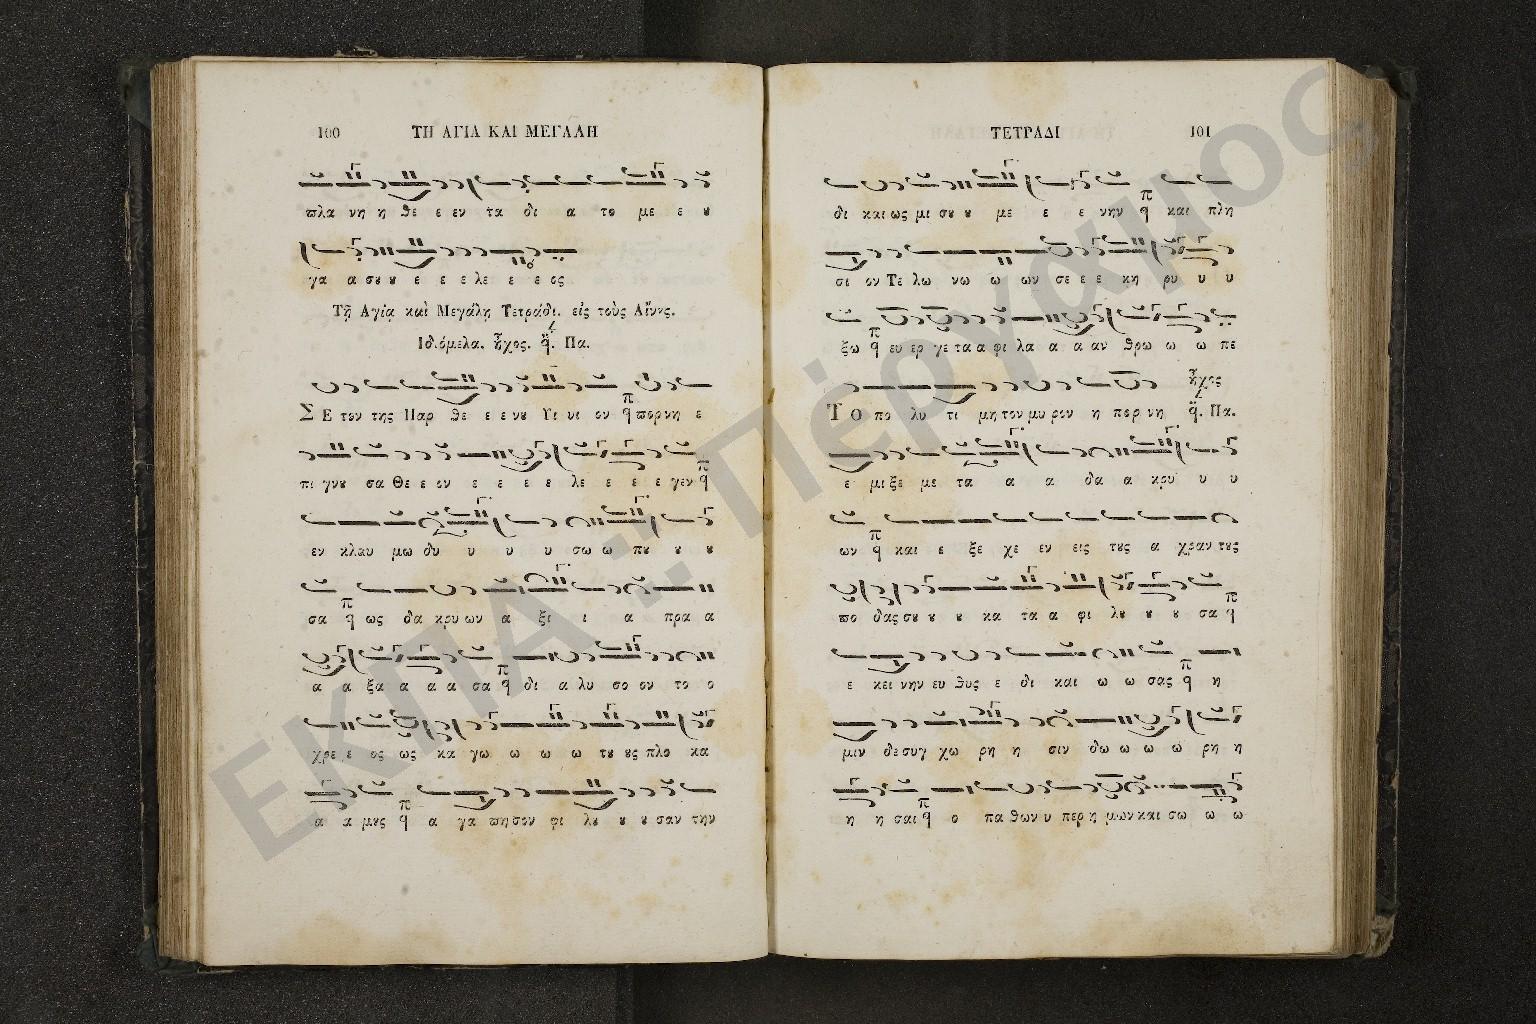 100 ΤΗ ΑΓΙΑ ΚΑΙ ΜΕΓΑΛΗ
πλα νη η θε ε εν τα δι α το με ε ȣ
γα α σȣ ȣ ε ε ε λε ε ε ος
Τῇ Αγίᾳ καὶ Μεγάλῃ Τετράδι. εἰς τοὺς Αἴνȣς.
Ιδιόμελα. ἦχος. Πα.
ΣΕ τον της Παρ θε ε ε νȣ Υι υι ον π πορ νη ε
πι γνȣ σα Θε ε ον ε ε ε ε λε ε ε ε γεν π
εν κλαυ μω δυ υ υ υ σω ω πȣ ȣ ȣ
σα π ως δα κρυ ων α ξι ι α πρα α
α α ξα α α α σα π δι α λυ σο ον το ο
χρε ε ος ως κα γω ω ω ω τȣ ȣς πλο κα
α α μȣς π α γα πη σον φι λȣ ȣ ȣ σαν την
ΤΕΤΡΑΔΙ 101
δι και ως μι σȣ ȣ με ε ε νην π και πλη
σι ον Τε λω νω ω ων σε ε ε κη ρυ υ υ
ξω π ευ ερ γε τα α φι λα α α αν θρω ω ω πε
ἦχος
ΤΟ πο λυ τι μη τον μυ ρον η πορ νη Πα.
ε μι ξε με τα α α δα α κρυ υ υ
ων π και ε ξε χε εν εις τȣς α χραν τȣς
πο δας σȣ ȣ ȣ κα τα α φι λȣ ȣ ȣ σα π
ε κει νην ευ θυς ε δι και ω ω σας π η
μιν δε συγ χω ρη η σιν δω ω ω ω ρη η
η η σαι π ο πα θων υ περ η μων και σω ω ω
ΕΚΠΑ::Πέργαμος